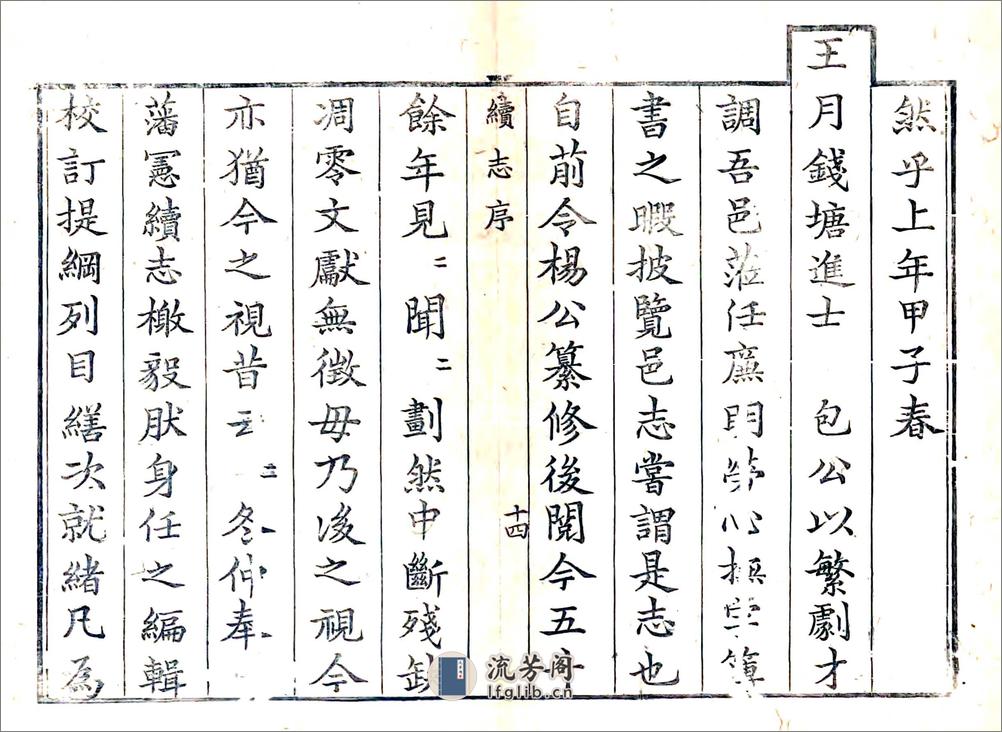 然乎上年甲子春
王月錢塘進士 包公以繁劇才
調吾邑蒞任廉明 心 簿
書之暇披覽邑志嘗謂是志也
自前令楊公纂修後閱今五十
續志序 十四
餘年見二聞二劃然中斷殘缺
凋零文獻無徵毋乃後之視今
亦猶今之視昔云二 冬仲奉
藩憲續志檄毅肰身任之編輯
校訂提綱列目繕次就緒凡為
流芳阁
lfglib.cn